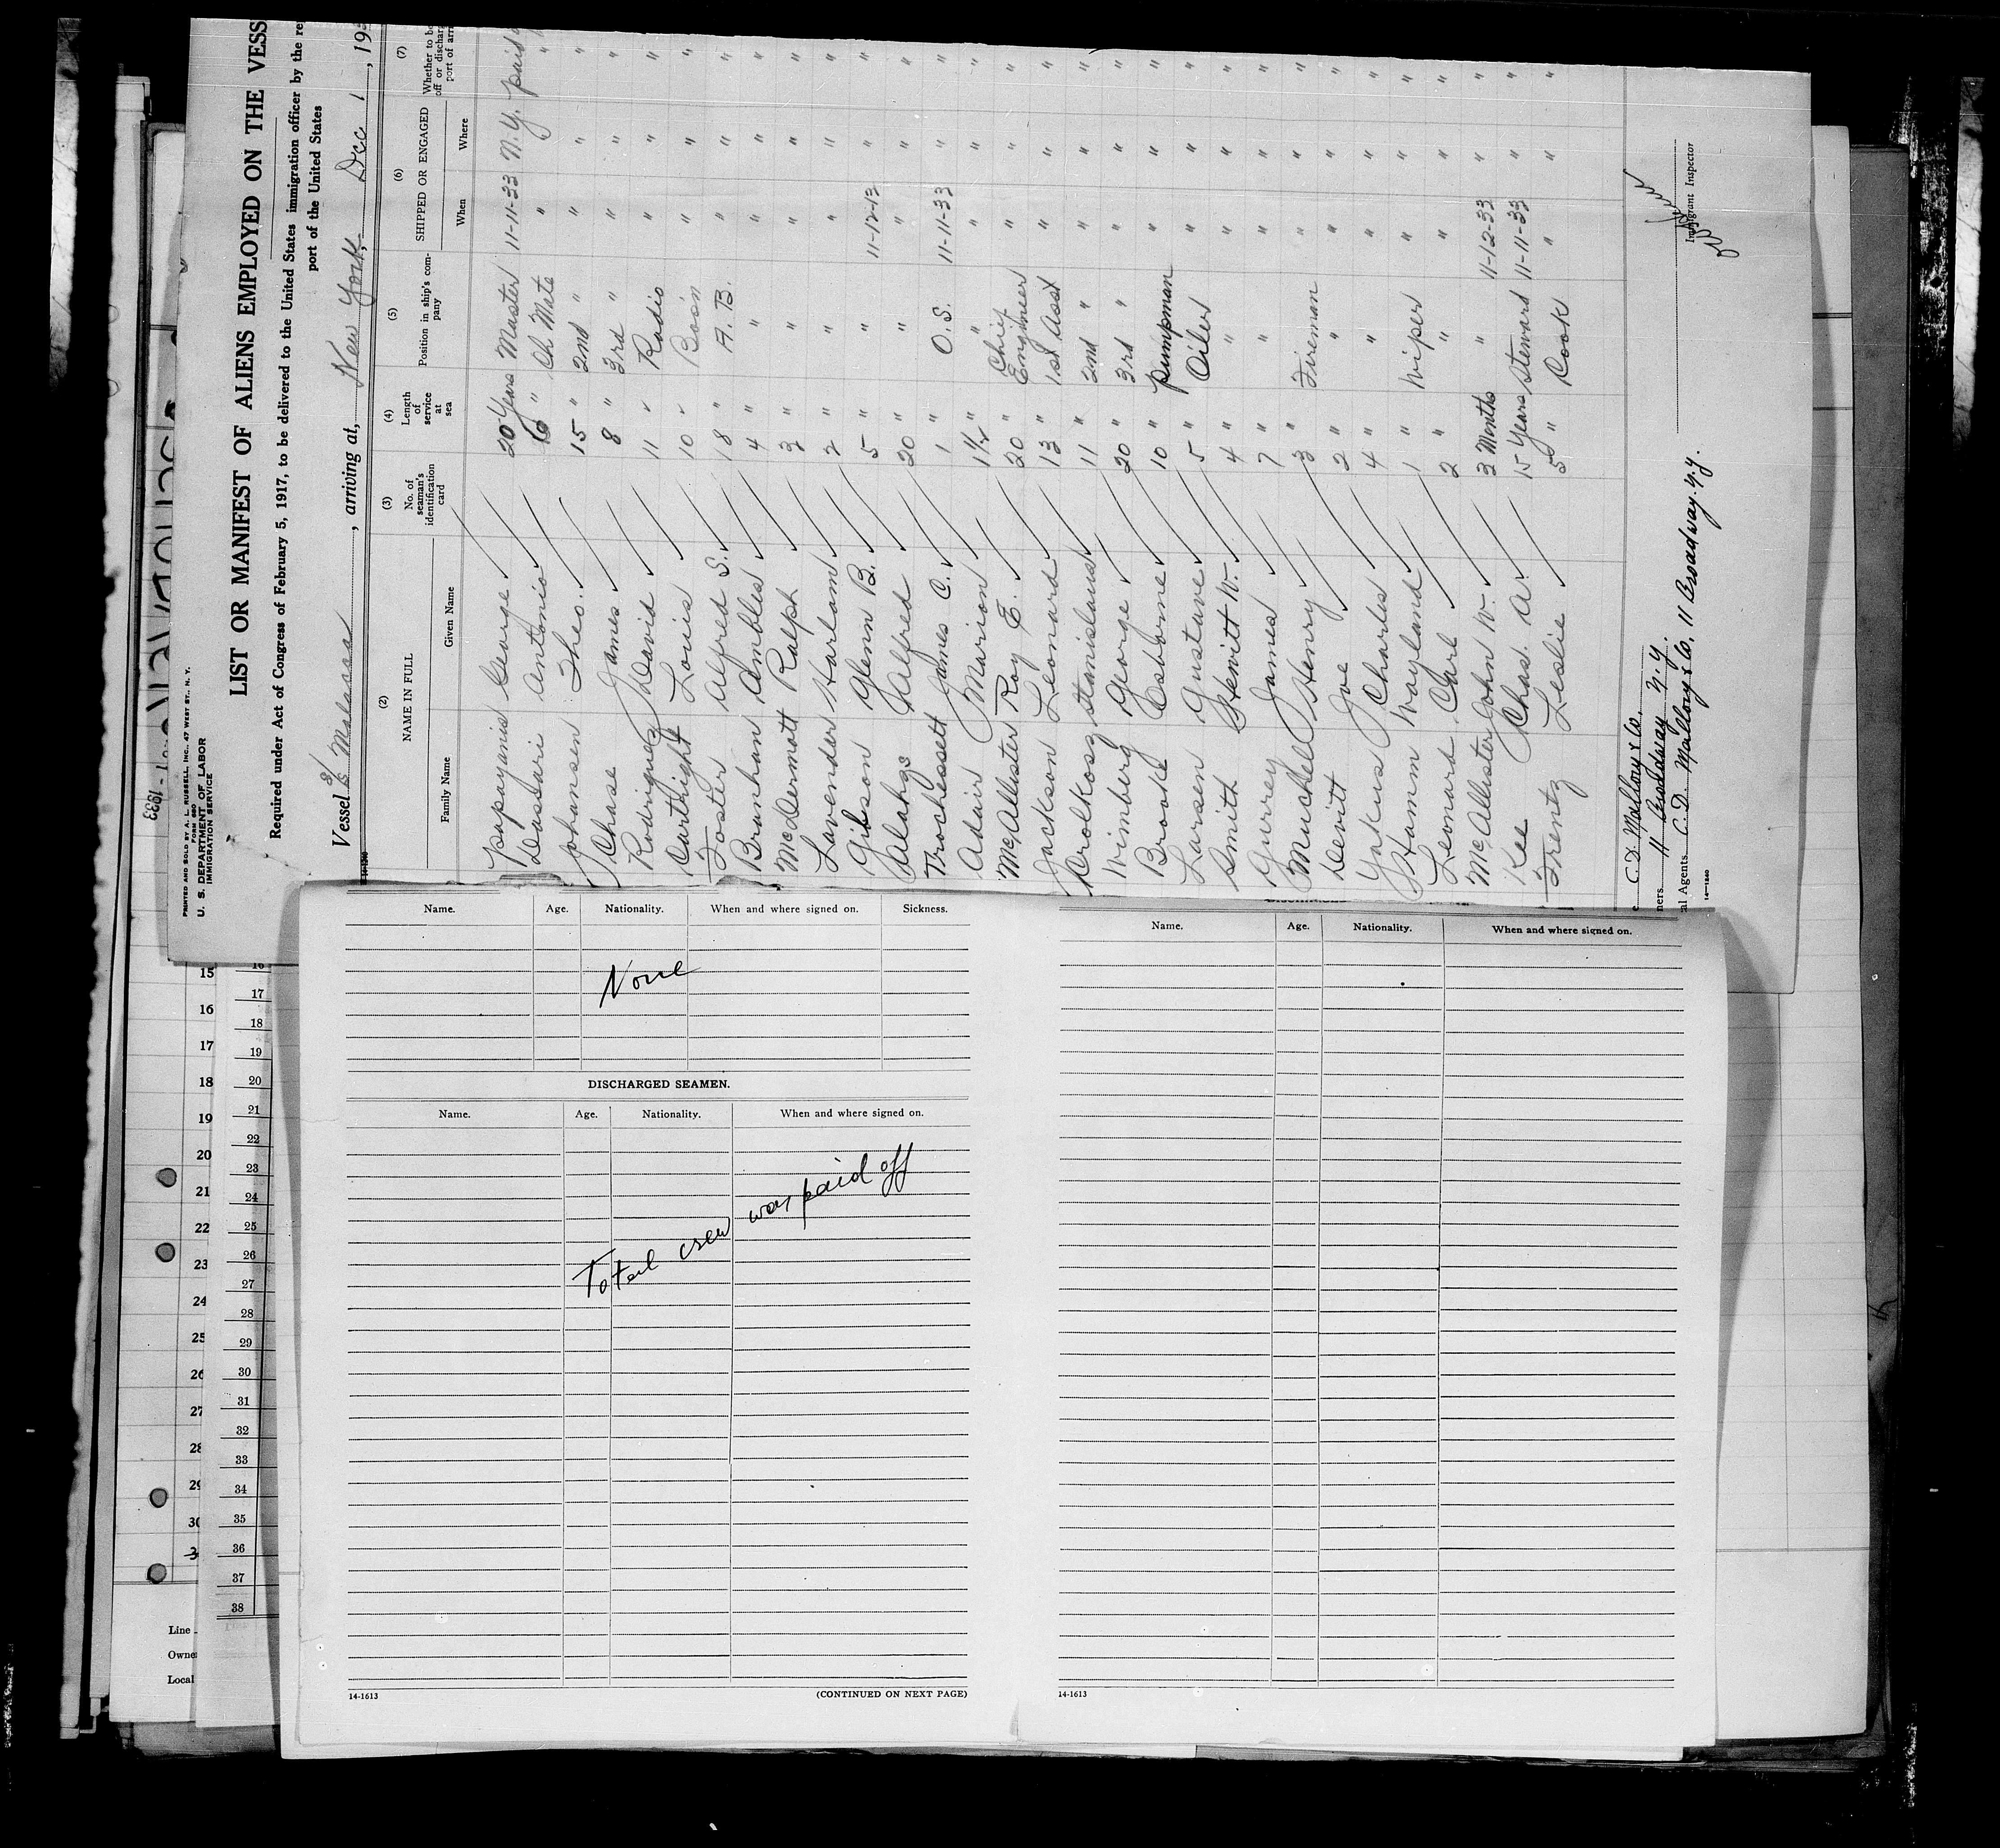 PRINTED AND SOLD BY A. L. RUSSELL, INC., 47 WEST ST., N. Y.
FORM 680
U. S. DEPARTMENT OF LABOR
IMMIGRATION SERVICE
LIST OR MANIFEST OF ALIENS EMPLOYED ON THE VESS
Required under Act of Congress of February 5, 1917, to be delivered to the United States immigration officer by the re
port of the United States
Vessel S/S Malacca, arriving at, New York, Dec 1, 19
(2) (3) (4) (5) (6) (7)
NAME IN FULL No. of seaman's identification card Length of service at sea Position in ship's company SHIPPED OR ENGAGED Whether to be off or discharg port of arri
Family Name Given Name When Where
Papayanis George 20 Years Master 11-11-33 N.Y. paid
Dassari Antonio " Ch Mate " " "
Johansen Theo. 15 " 2nd " " " "
Chase James 8 " 3rd " " " "
Rodriguez David 11 " Radio " " "
Cartright Louis 10 " Bosin " " "
Foster Alfred S. 18 " A.B. " " "
Branhan Ambles 4 " " " " "
McDermott Ralph 3 " " " " "
Lavender Harlam 2 " " " " "
Gibson Glenn B. 5 " " 11-12-13 " "
Alfred 20 " " " " "
Trochessett James C. 1 " O.S. 11-11-33 " "
Adair Marion 1 1/2 " " " " "
McAllister Roy E. 20 " Chief Engineer " " "
Jackson Leonard 13 " 1st Asst " " "
Krolkosz Stanislaus 11 " 2nd " " " "
Wimberg George 20 " 3rd " " " "
Brooke Osborne 10 " Pumpman " " "
Larsen Gustave 5 " Oiler " " "
Smith Hewitt W. 4 " " " " "
Gurrey James 7 " " " " "
Muschell Henry 3 " Fireman " " "
Devitt Joe 2 " " " " "
Yakus Charles 4 " " " " "
Hamm Wayland 1 " Wiper " " "
Leonard Carl 2 " " " " "
McAllister John W. 3 Months " 11-12-33 " "
Kee Chas. A. 15 Years Steward 11-11-33 " "
Frentz Leslie 5 " Cook " " "
e C. D. Mallory & Co.
ners 11 Broadway N.Y.
al Agents C.D. Mallory & Co. 11 Broadway. N.Y.
14-1240
Immigrant Inspector
1933
Name. Age. Nationality. When and where signed on. Sickness.
None
DISCHARGED SEAMEN.
Name. Age. Nationality. When and where signed on.
Total crew was paid off
14-1613 (CONTINUED ON NEXT PAGE)
Name. Age. Nationality. When and where signed on.
14-1613
15
16
17
18
19
20
21
22
23
24
25
26
27
28
29
30
3
16
17
18
19
20
21
22
23
24
25
26
27
28
29
30
31
32
33
34
35
36
37
38
Line
Owne
Local